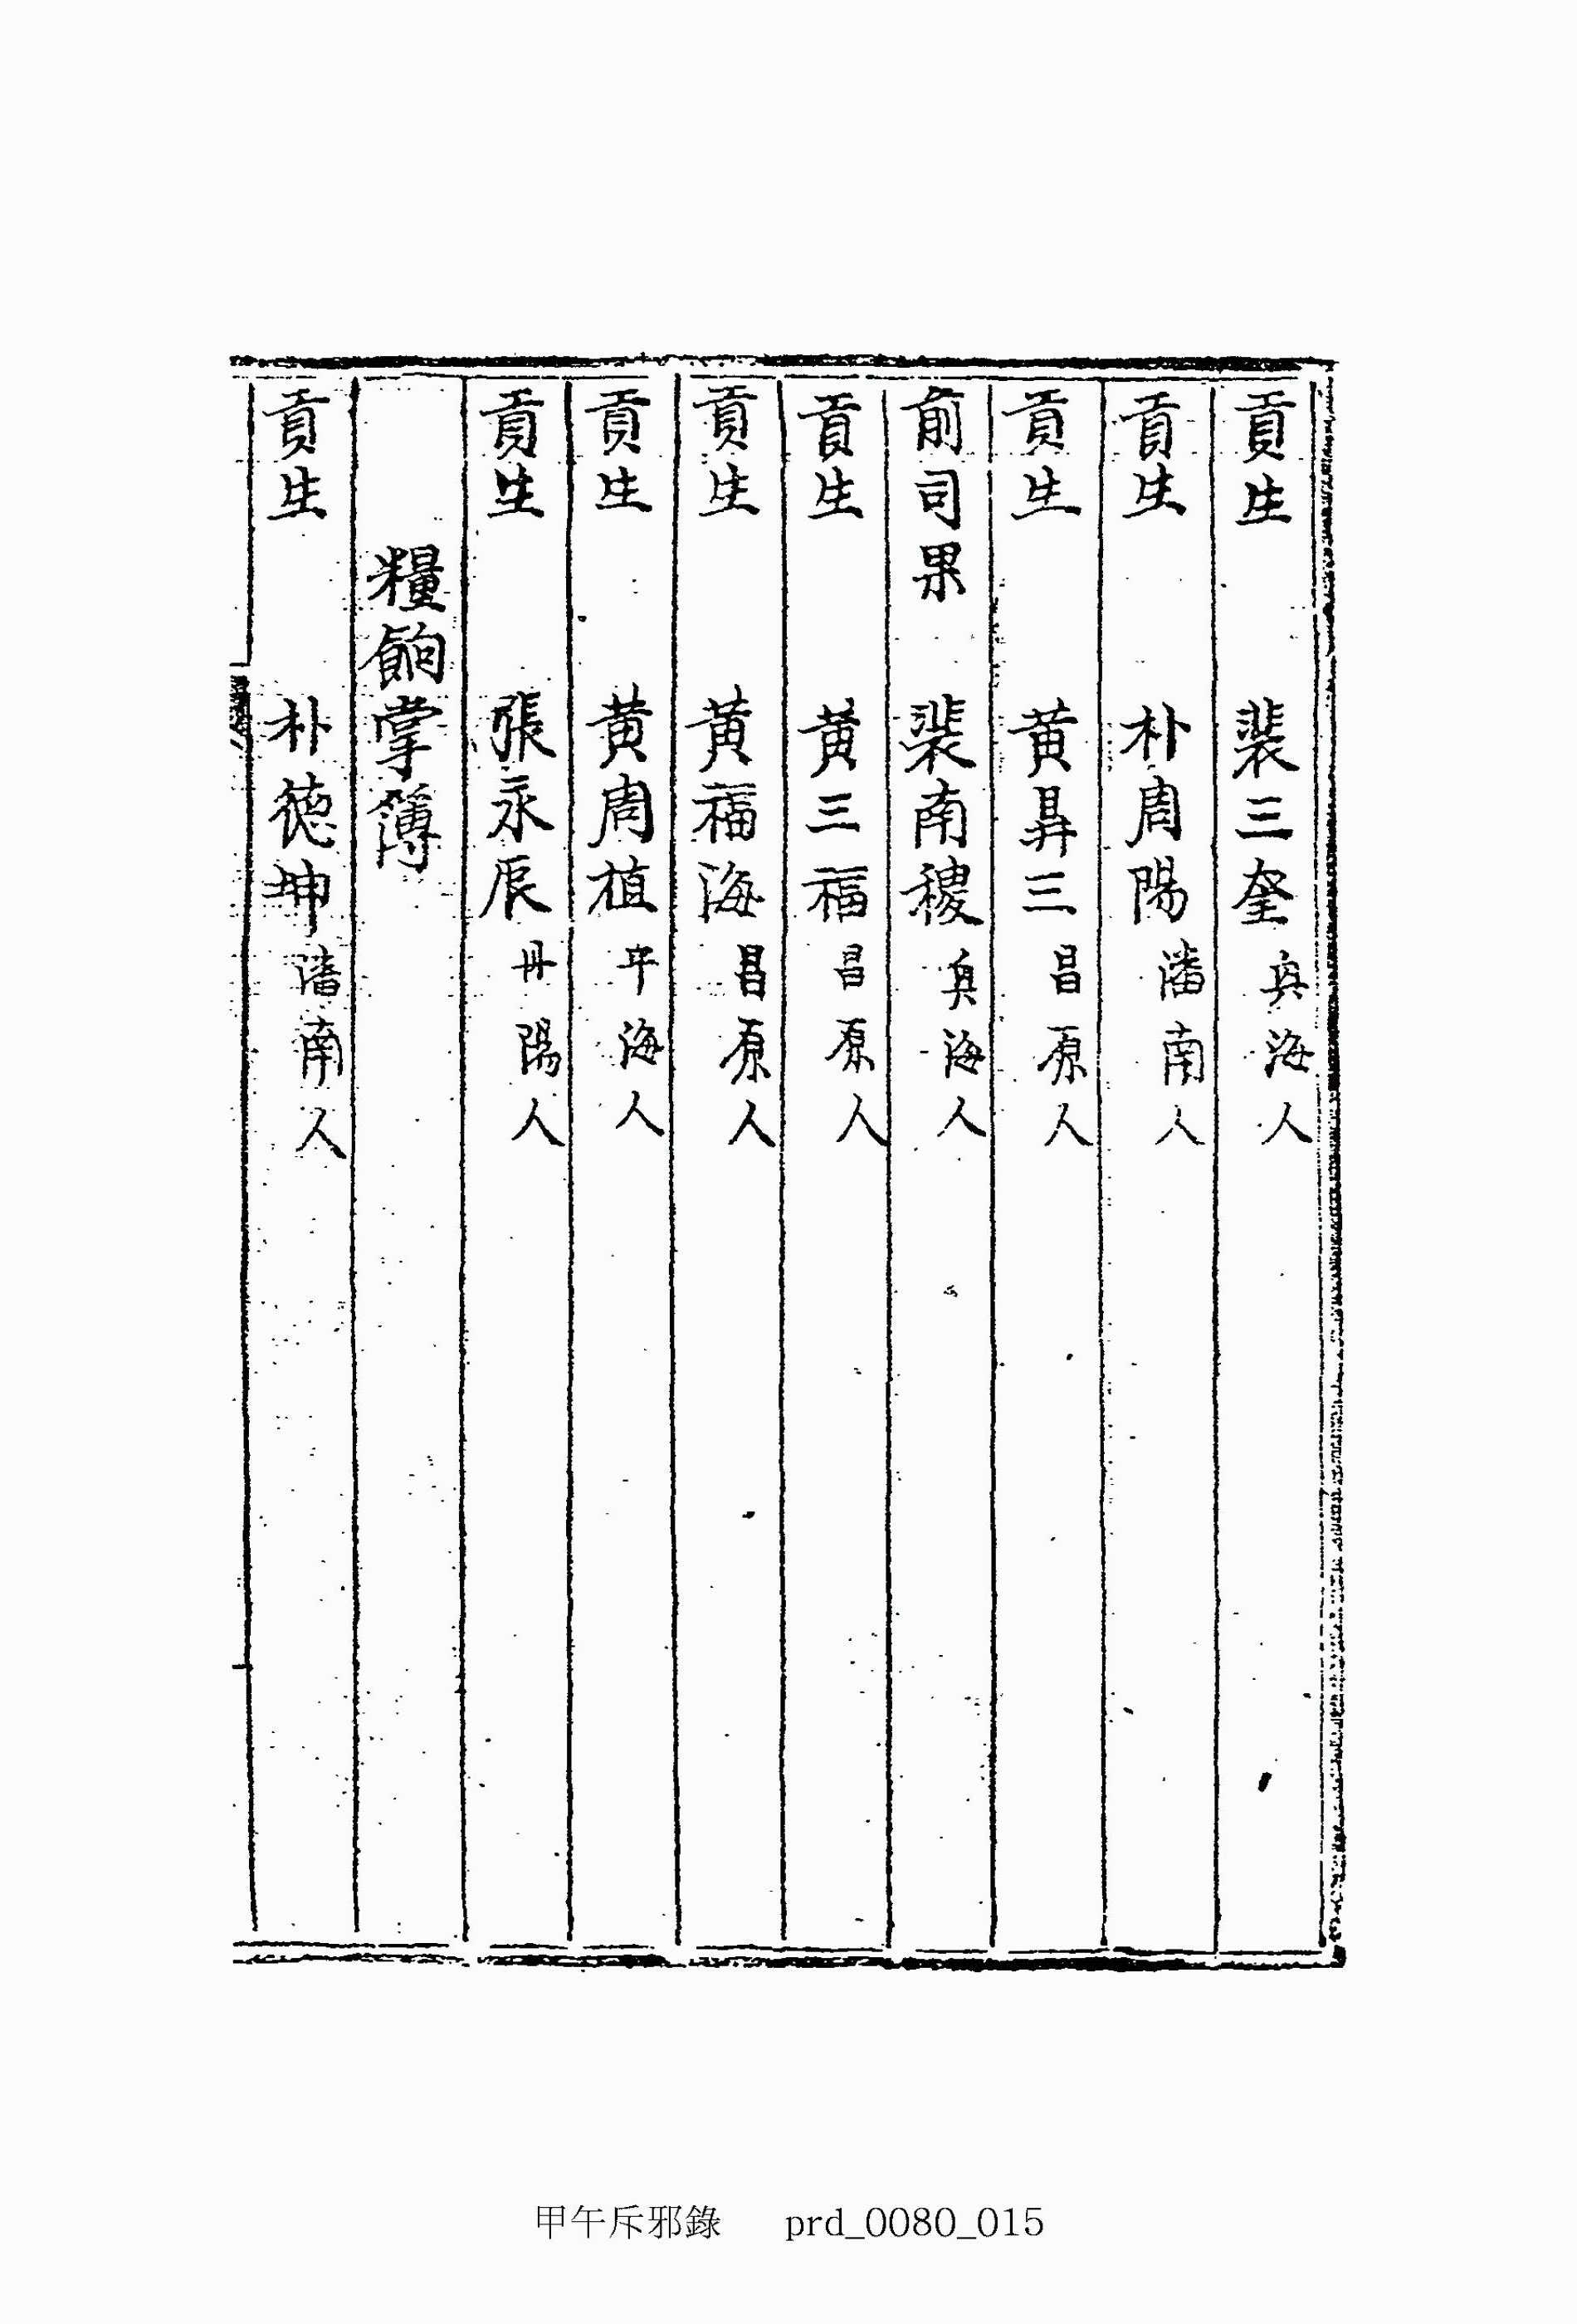 貢生 裴三奎 興海人
貢生 朴周陽 潘南人
貢生 黃昪三 昌原人
前司果 裴南稷 興海人
貢生 黃三福 昌原人
貢生 黃福海 昌原人
貢生 黃周植 平海人
貢生 張永辰 丹陽人
糧餉掌簿
貢生 朴德坤 潘南人
甲午斥邪錄 prd_0080_015